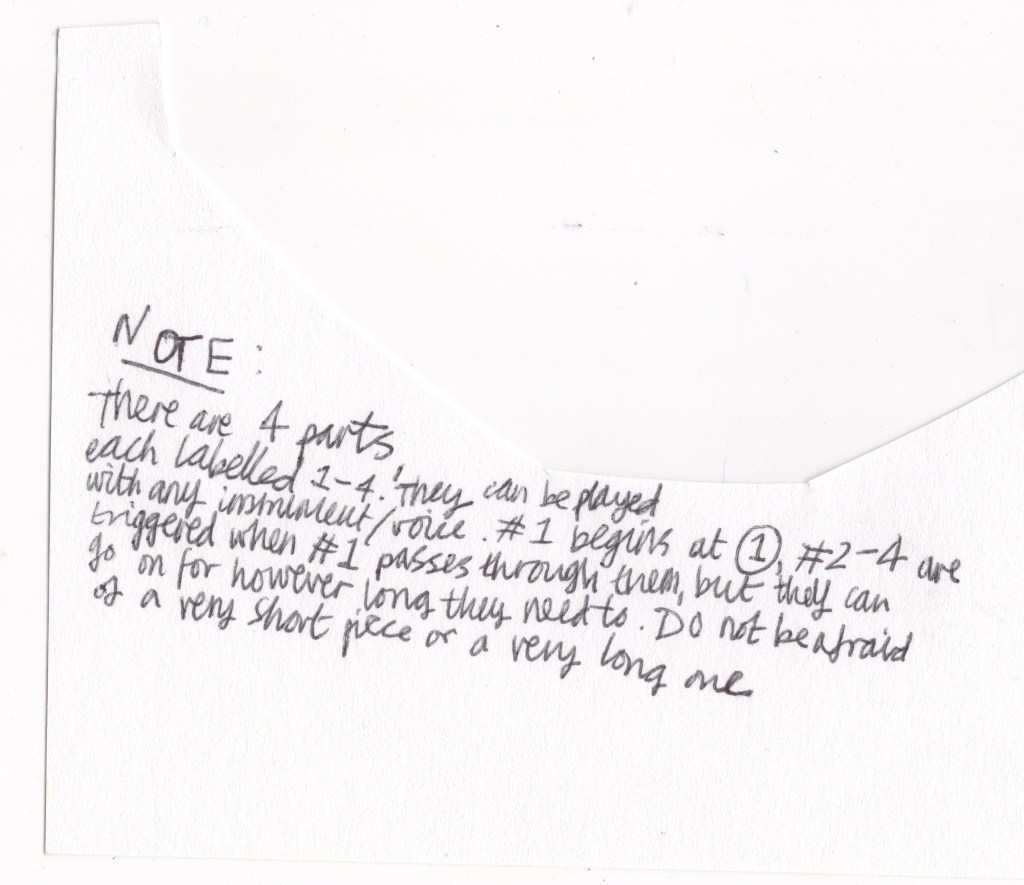 NOTE:
There are 4 parts,
each labelled 1-4. They can be played
with any instrument/voice. #1 begins at ①, #2-4 are
triggered when #1 passes through them, but they can
go on for however long they need to. Do not be afraid
of a very short piece or a very long one